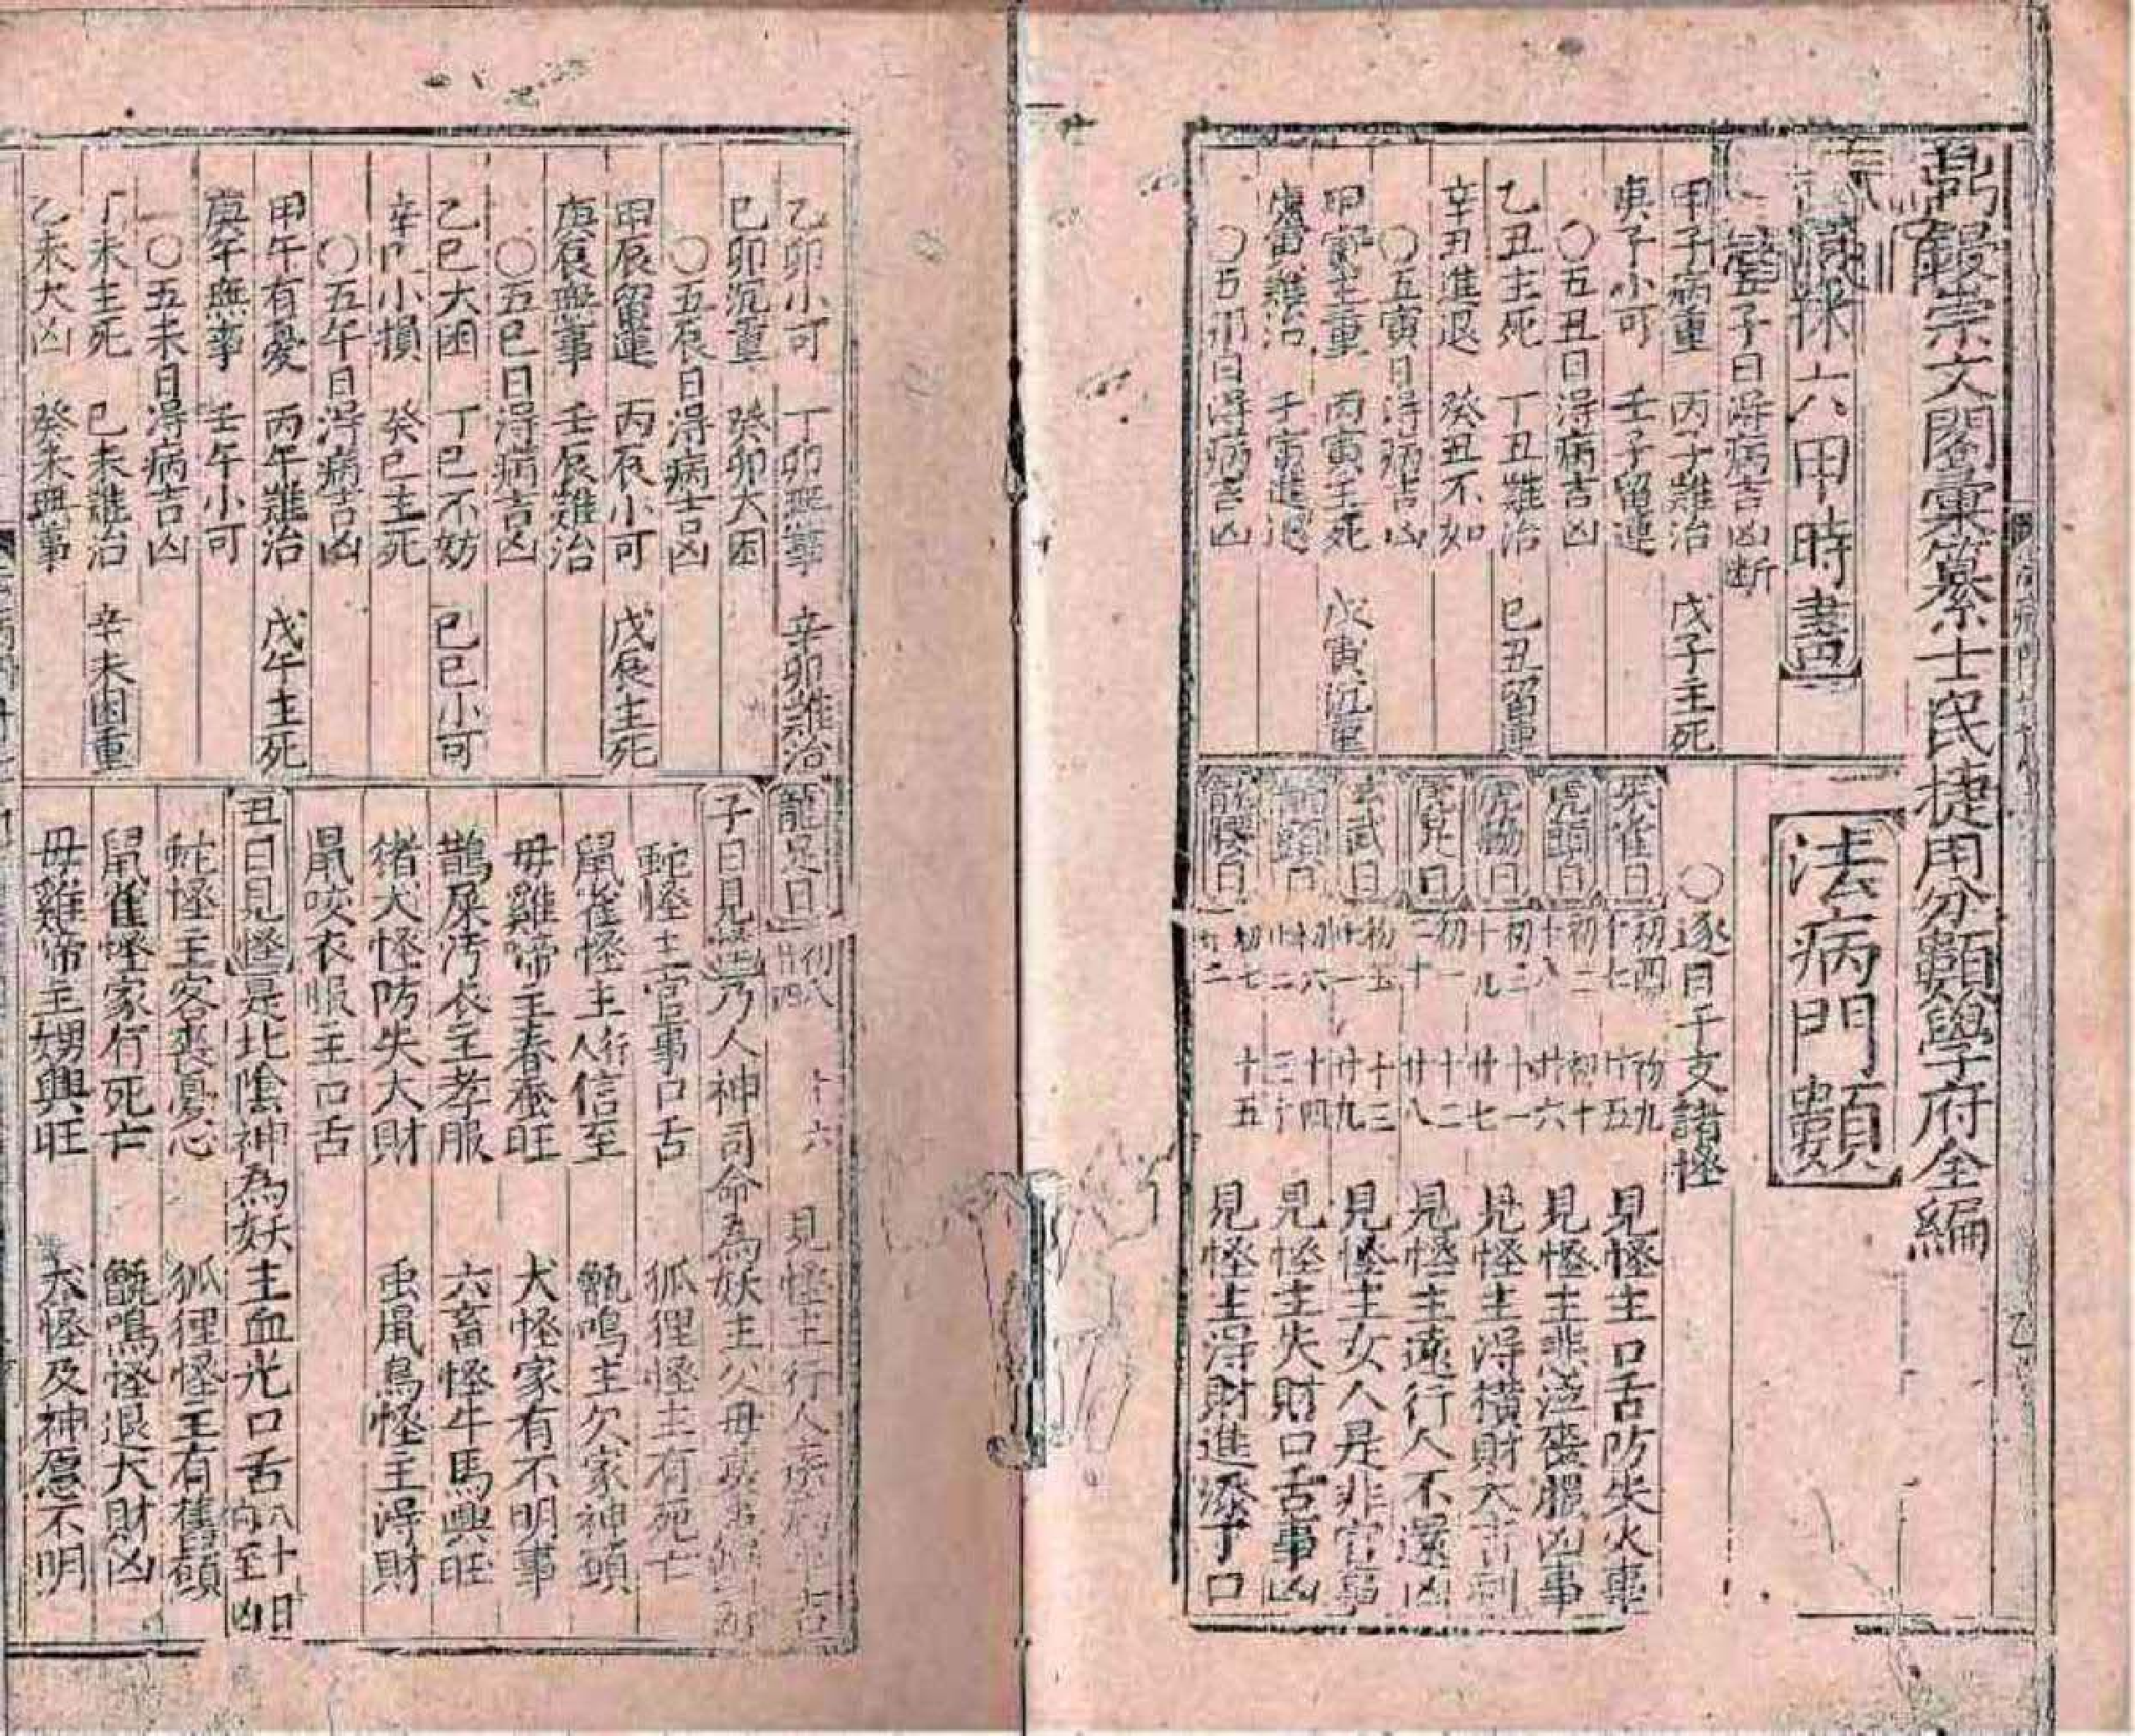 鼎鋟崇文閣彙纂士民捷用分類學府全編
法病門類
六甲時書
五子日淂病吉凶断
甲子病重 丙子難治 戊子主死
庚子小可 壬子留連
〇五丑日淂病吉凶
乙丑主死 丁丑難治 己丑留連
辛丑進退 癸丑不如
〇五寅日淂病吉凶
甲寅主重 丙寅主死 戊寅沉重
庚寅難治 壬寅進退
〇五卯日淂病吉凶
〇逐日干支諸怪
朱雀日 初四 十七 初九 廿五 見怪主口舌防失火事
虎頭日 初二 十八 初十 廿六 見怪主悲泣喪服凶事
虎脇日 初三 十九 十一 廿七 見怪主淂橫財大吉利
虎足日 初一 二十 十二 廿八 見怪主遠行人不還凶
玄武日 初五 廿一 十三 廿九 見怪主女人是非官事
龍頭日 初六 廿二 十四 三十 見怪主失財口舌事凶
龍脇日 初七 十五 見怪主淂財進添子口
乙卯小可 丁卯無事 辛卯難治
己卯沉重 癸卯大困
〇五辰日淂病吉凶
甲辰留連 丙辰小可 戊辰主死
庚辰無事 壬辰難治
〇五巳日淂病吉凶
乙巳大困 丁巳不妨 己巳小可
辛巳小損 癸巳主死
〇五午日淂病吉凶
甲午有憂 丙午難治 戊午主死
庚午無事 壬午小可
〇五未日淂病吉凶
丁未主死 己未難治 辛未困重
乙未大凶 癸未無事
龍足日 初八 廿四 十六 見怪主行人
子日見怪 乃人神司命為妖主父母
蛇怪主官事口舌 狐狸怪主有死亡
鼠雀怪主行人信至 甑鳴主欠家神願
毋雞啼主春蚕旺 犬怪家有不明事
鵲屎汚衣主孝服 六畜怪牛馬興旺
猪犬怪防失大財 禹鼠鳥怪主淂財
鼠咬衣服主口舌
丑日見怪 是北陰神為妖主血光口舌八十日內至凶
蛇怪主客喪憂心 狐狸怪主有舊願
鼠雀怪家有死亡 甑鳴怪退大財凶
毋雞啼主甥興旺 犬怪及神愿不明